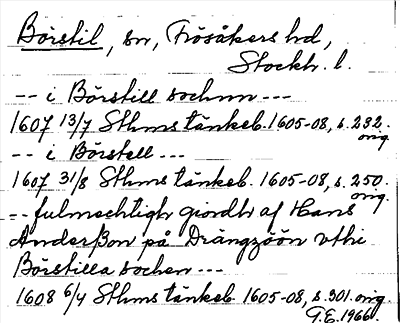 Börstil, sn, Frösåkers hd,
Stockh. l.
-- i Börstill sochnn ---
1607 13/7 Sthms tänkeb. 1605-08, s. 232.
orig.
-- i Börstell ---
1607 31/8 Sthms tänkeb. 1605-08, s. 250.
orig.
-- fulmechtigh giordh af Hans
Anderßon på Drängzöön vthi
Börstilla sochen ---
1608 6/4 Sthms tänkeb. 1605-08, s. 301. orig.
G.E. 1966.